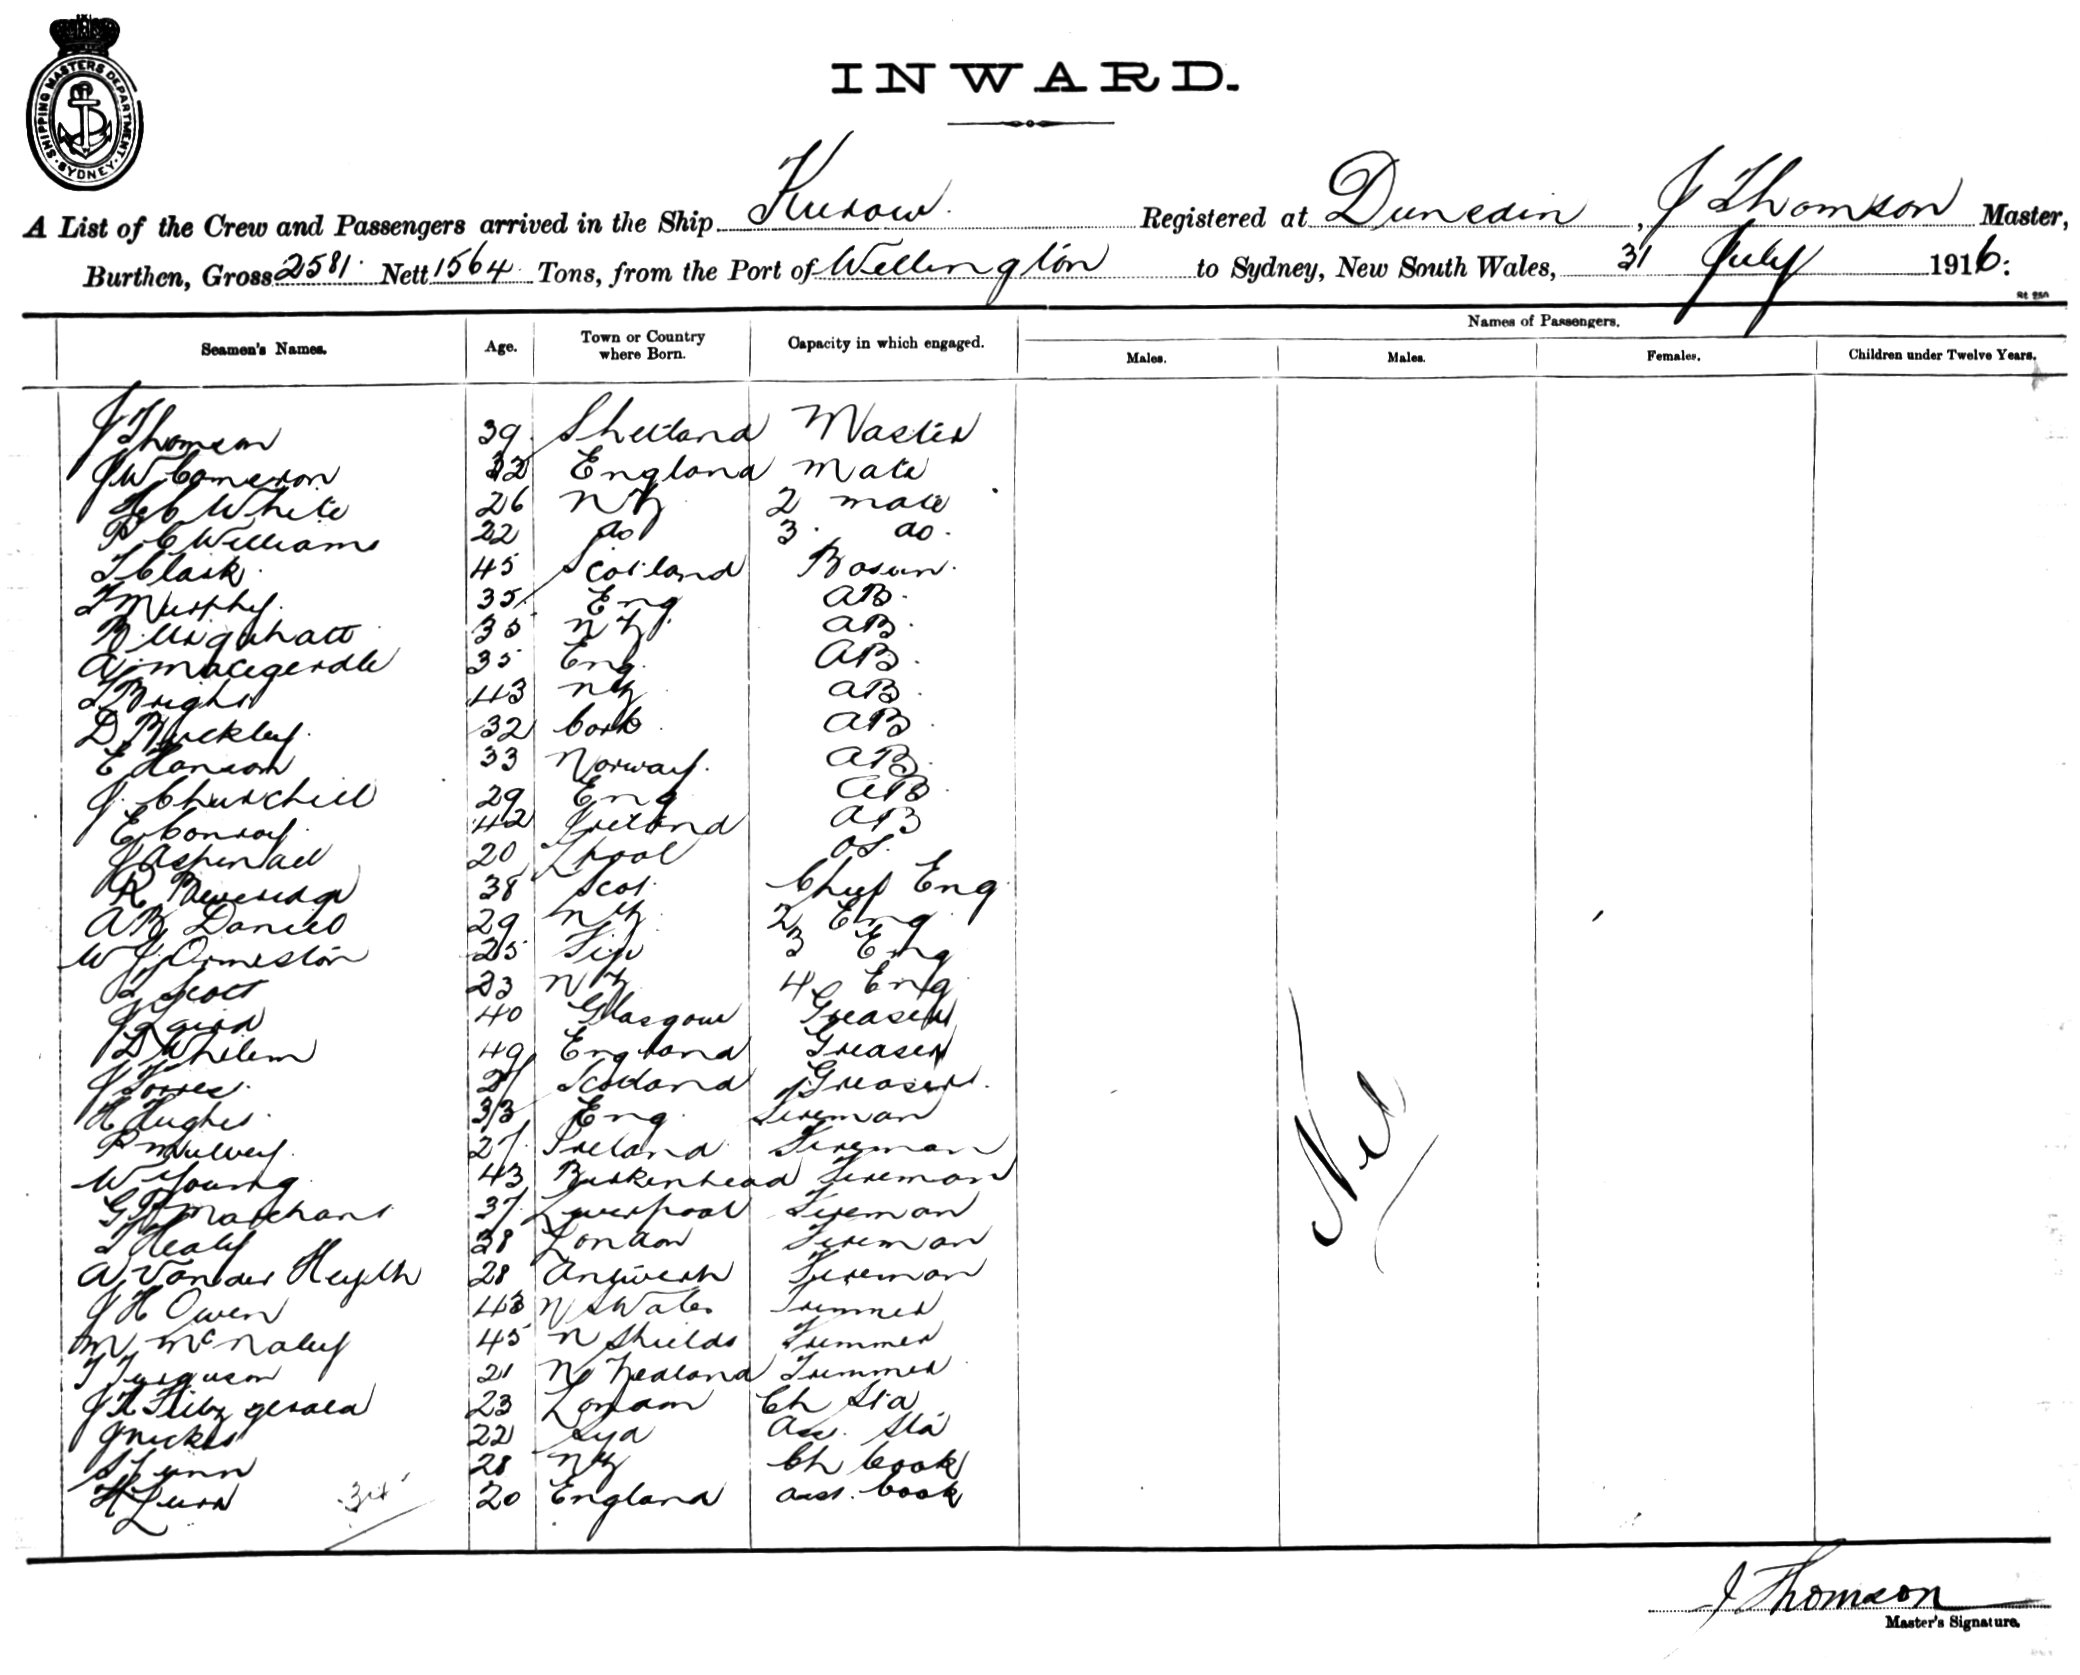 SHIPPING MASTERS DEPARTMENT · SYDNEY ·
INWARD.
A List of the Crew and Passengers arrived in the Ship Kurow. Registered at Dunedin, J Thomson Master,
Burthen, Gross 2581 Nett 1564 Tons, from the Port of Wellington to Sydney, New South Wales, 31 July 1916:
Names of Passengers.
Seamen's Names. Age. Town or Country where Born. Capacity in which engaged. Males. Males. Females. Children under Twelve Years.
J Thomson 39 Shetland Master
J W Cameron 32 England Mate
H C White 26 NZ 2 mate
P C Williams 22 do 3 do.
T Clark 45 Scotland Bosun.
T Murphy. 35 Eng AB.
R Urquhart 35 NZ. AB.
A 35 Eng. AB.
T Bright 43 NZ AB.
D Buckley. 32 Cork AB.
E Hanson 33 Norway. AB.
J. Churchill 29 Eng AB.
E Conroy. 42 Ireland AB
J Aspinall 20 Lpool OS.
R Beveridge 38 Scot. Chief Eng
A B Daniel 29 NZ. 2 Eng
W J Ormiston 25 Fiji 3 Eng
T Scott 23 NZ 4 Eng
J Laird 40 Glasgow Greaser
D 49 England Greaser
J Torres. Scotland Greaser.
H Hughes. 33 Eng. Fireman
P Mulvey. 27. Ireland Fireman
W Young 43 Birkenhead Fireman
G B Marchant 37. Liverpool Fireman
T Healy 38 London Fireman
A Vander 28 Antwerp Fireman
J H Owen 43 N S Wales Trimmer
M McNaley 45 N Shields Trimmer
T Ferguson 21 N Zealand Trimmer
J H Fitzgerald 23 London Ch Std
22 Syd Ass. Std
S Lunn 28 NZ Ch Cook
H 20 England asst. Cook
34
Nil
J Thomson
Master's Signature.